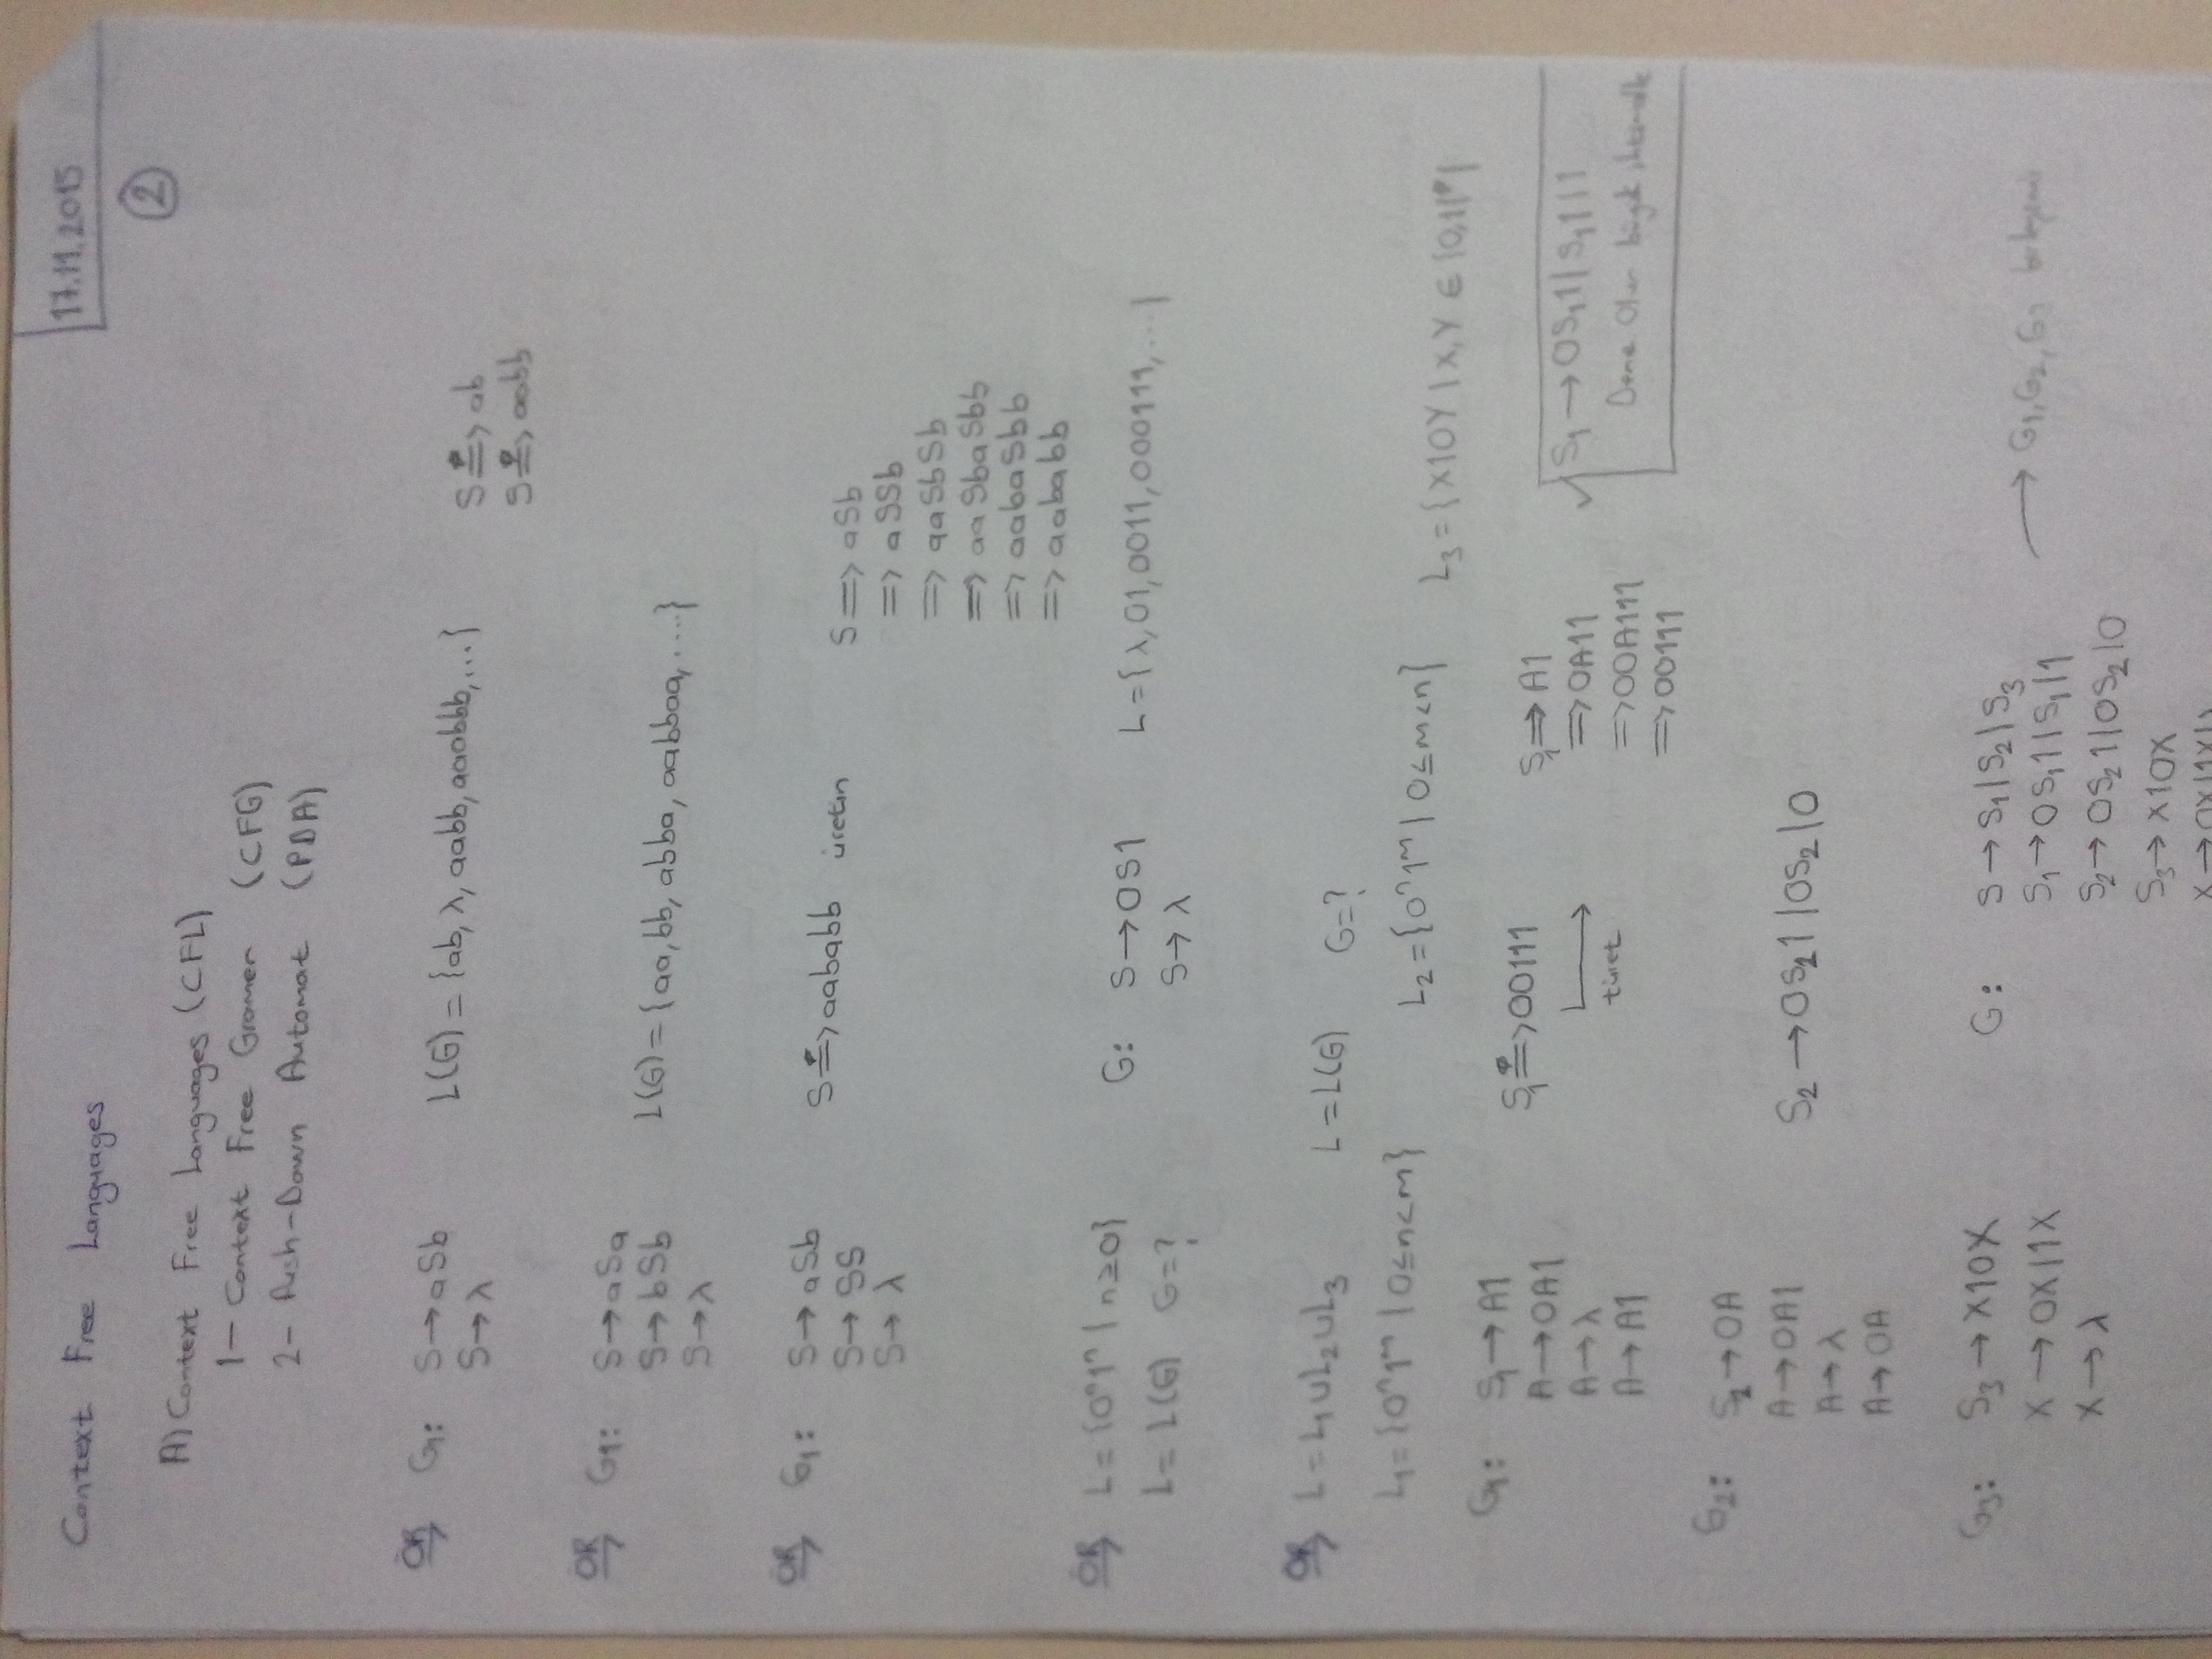 17.11.2015
2
Context Free Languages
A) Context Free Languages (CFL)
1- Context Free Gramer (CFG)
2- Push-Down Automat (PDA)
ÖR G1: S→aSb
S→λ
L(G) = {ab, λ, aabb, aaabbb, ...}
S *=> ab
S *=> aabb
ÖR G1: S→aSa
S→bSb
S→λ
L(G) = {aa, bb, abba, aabbaa, ....}
ÖR G1: S→aSb
S→SS
S→λ
S *=> aababb üretin
S => aSb
=> aSSb
=> aaSbSb
=> aaSbaSbb
=> aabaSbb
=> aababb
ÖR L = {0ⁿ1ⁿ | n≥0}
L = L(G) G=?
G: S→0S1
S→λ
L = {λ, 01, 0011, 000111, ...}
ÖR L = L1 ∪ L2 ∪ L3 L = L(G) G=?
L1 = {0ⁿ1ᵐ | 0≤n<m} L2 = {0ⁿ1ᵐ | 0≤m<n} L3 = {X10Y | X,Y ∈ {0,1}*}
G1: S1→A1
A→0A1
A→λ
A→A1
S1 *=> 00111
türet
S1 => A1
=> 0A11
=> 00A111
=> 00111
√ S1→0S11|S11|1
Dene Olur büyük ihtimalle
G2: S2→0A
A→0A1
A→λ
A→0A
S2→0S21|0S2|0
G3: S3→X10X
X→0X|1X
X→λ
G: S→S1|S2|S3
S1→0S11|S1|1
S2→0S21|0S2|0
S3→X10X
X→0X|1X|λ
→ G1, G2, G3